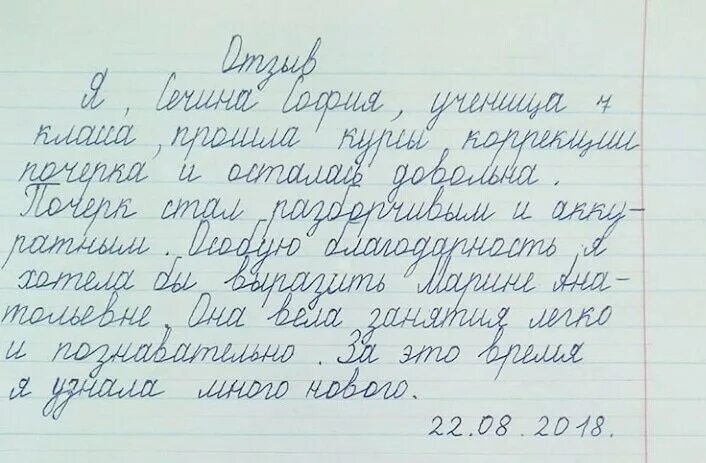 Отзыв
Я, Сечина София, ученица 7
класса, прошла курсы коррекции
почерка и осталась довольна.
Почерк стал разборчивым и акку-
ратным. Особую благодарность я
хотела бы выразить Марине Ана-
тольевне. Она вела занятия легко
и познавательно. За это время
я узнала много нового.
22.08.2018.